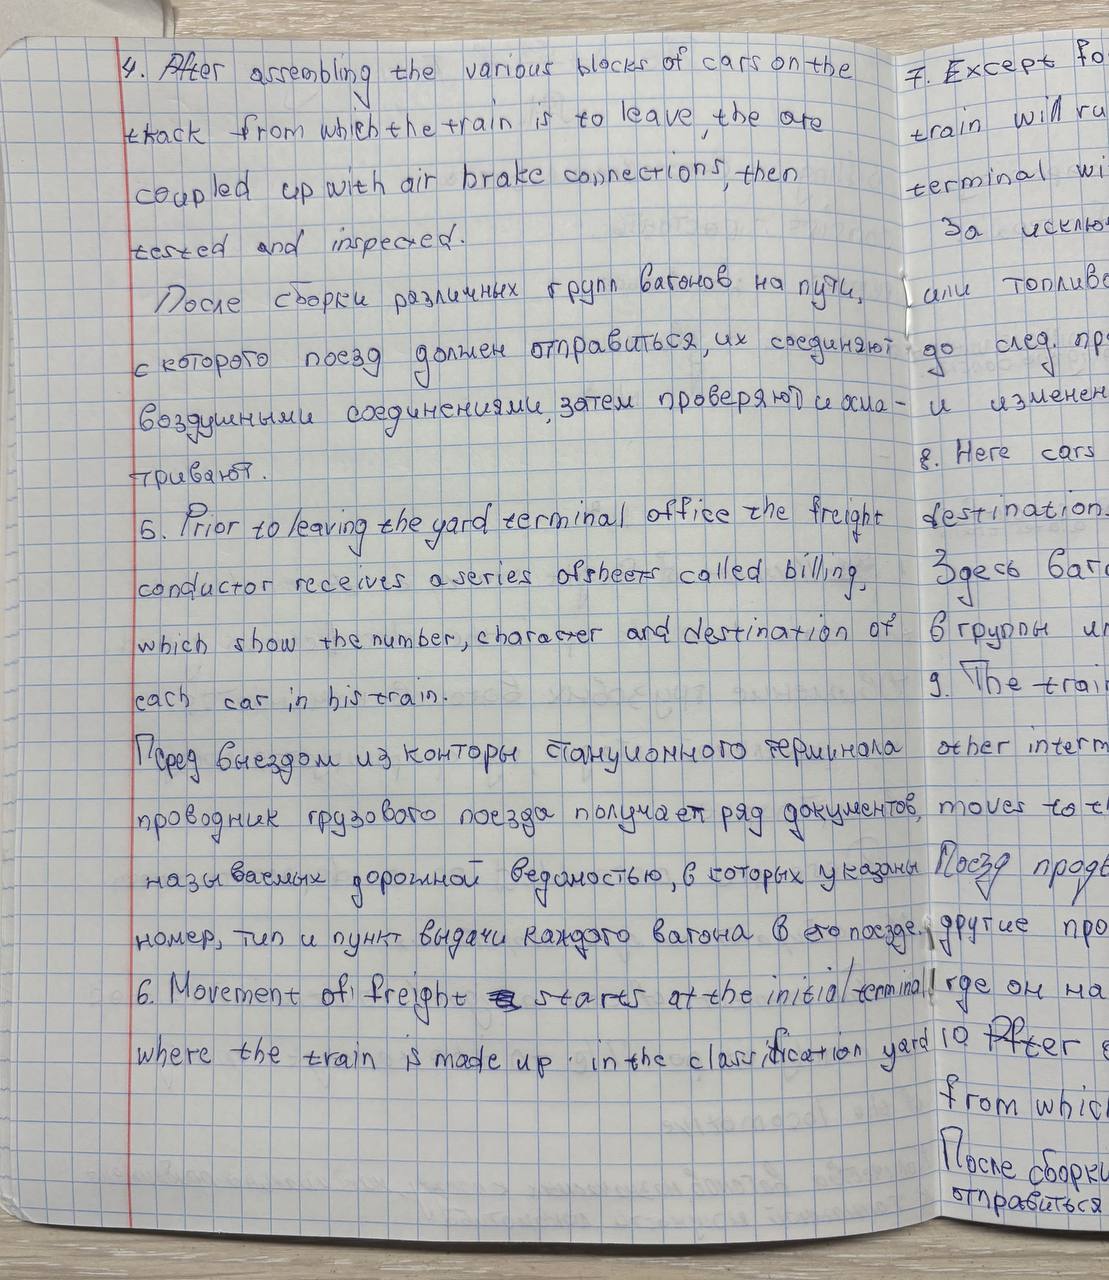 4. After assembling the various blocks of cars on the
track from which the train is to leave, the are
coupled up with air brake connections, then
tested and inspected.
После сборки различных групп вагонов на пути,
с которого поезд должен отправиться, их соединяют
воздушными соединениями, затем проверяют и осма-
тривают.
5. Prior to leaving the yard terminal office the freight
conductor receives a series of sheets called billing,
which show the number, character and destination of
each car in his train.
Перед выездом из конторы станционного терминала
проводник грузового поезда получает ряд документов,
называемых дорожной ведомостью, в которых указаны
номер, тип и пункт выдачи каждого вагона в его поезде.
6. Movement of freight starts at the initial terminal
where the train is made up in the classification yard
7. Except fo
train will ru
terminal wi
За исклю
или топливо
до след. пр
и изменен
8. Here cars
destination.
Здесь ваго
в группы и
9. The train
other interm
moves to th
Поезд продв
другие про
где он на
10 After
from which
После сборки
отправиться